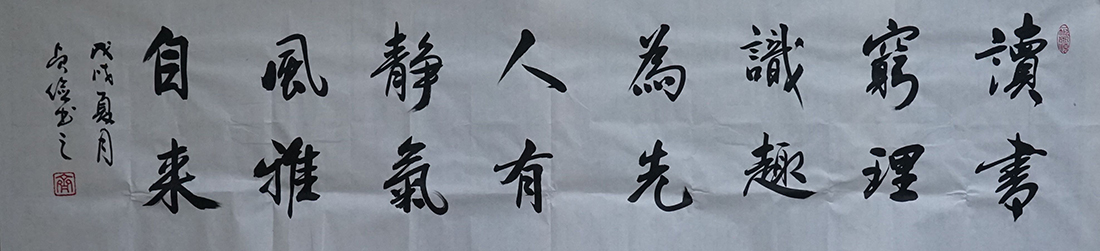 讀書
窮理
識趣
為先
人有
靜氣
風雅
自来
戊戌夏月